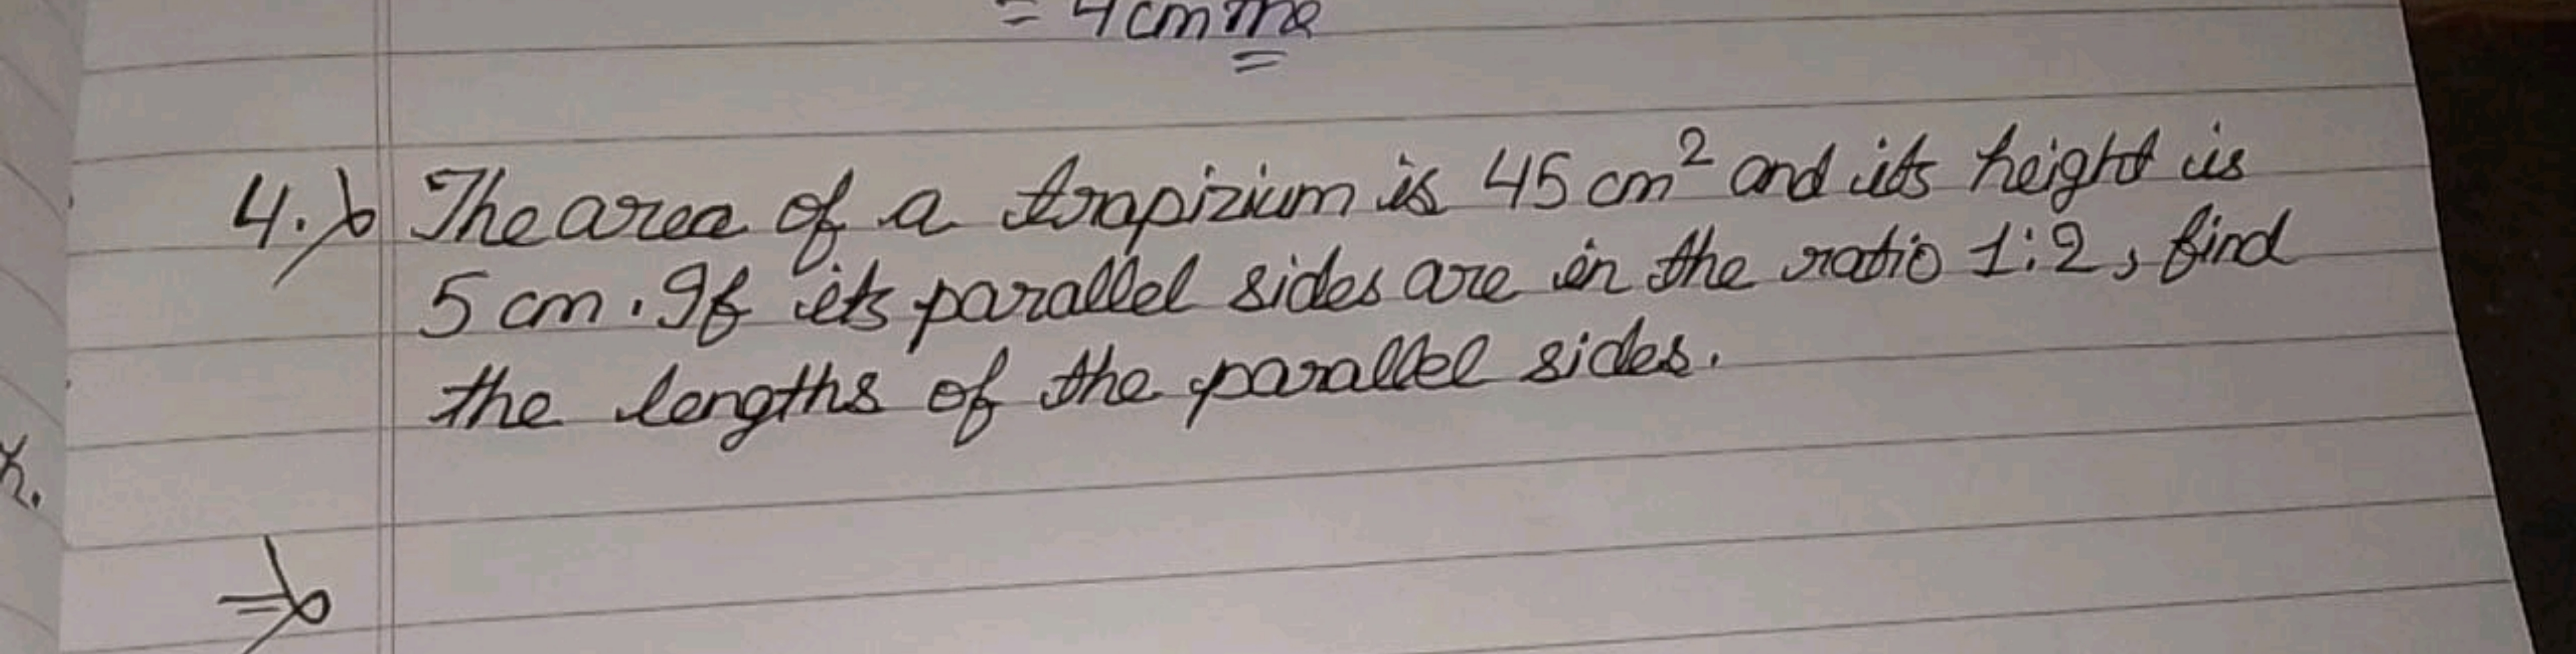 = 4 cm me
4. The area of a trapizium is 45 cm² and its height is
5 cm. If its parallel sides are in the ratio 1:2, find
the lengths of the parallel sides.
x.
⇒